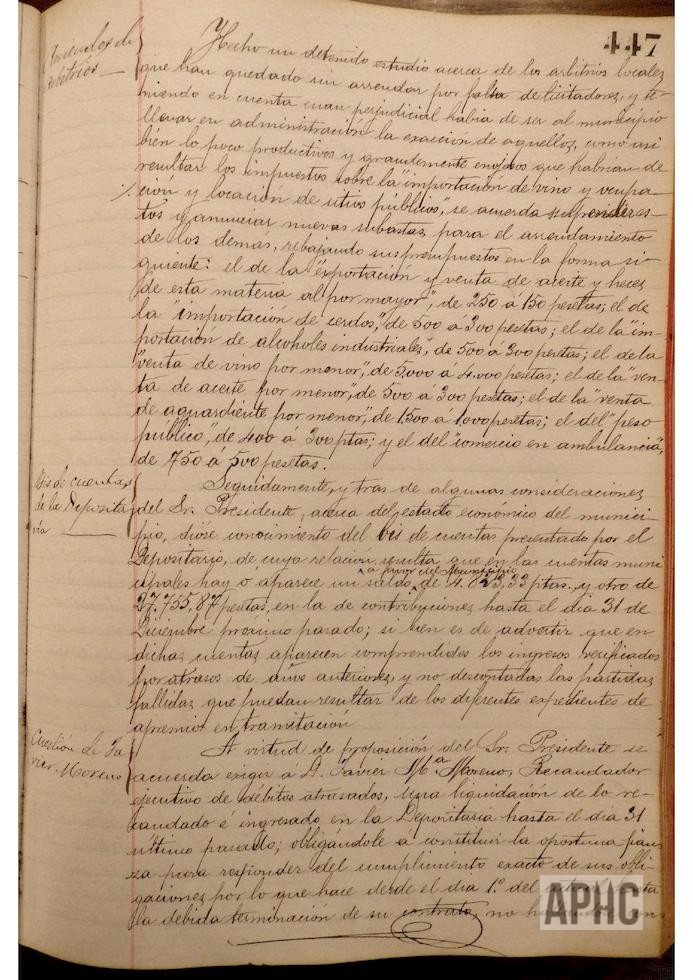 447
Arriendos de
arbitrios
Hecho un detenido estudio acerca de los arbitrios locales
que han quedado sin arrendar por falta de licitadores, y te-
niendo en cuenta cuan perjudicial habia de ser al municipio
llevar en administración la exacción de aquellos, como asi
bien lo poco productivos y grandemente enojosos que habrían de
resultar los impuestos sobre la "importación de vino y ocupa-
cion y locación de sitios públicos", se acuerda suspender es-
tos y anunciar nuevas subastas para el arrendamiento
de los demás, rebajando sus presupuestos en la forma si-
guiente: el de la "exportación y venta de aceite y heces
de esta materia al por mayor", de 250 á 150 pesetas; el de
la "importación de cerdos," de 500 á 300 pesetas; el de la "im-
portación de alcoholes industriales", de 500 á 300 pesetas; el de la
"venta de vino por menor", de 5,000 á 4.000 pesetas; el de la "ven-
ta de aceite por menor", de 500 á 300 pesetas; el de la "venta
de aguardiente por menor", de 1.500 á 1,000 pesetas; el del "peso
público", de 400 á 300 ptas; y el del "comercio en ambulancia",
de 750 á 500 pesetas.
Bis de cuentas
de la Deposita
ría
Seguidamente, y tras de algunas consideraciones
del Sr. Presidente, acerca del estado económico del munici-
pio, dióse conocimiento del bis de cuentas presentado por el
Depositario, de cuya relación resulta que en las cuentas muni
cipales hay ó aparece un saldo de 4.823,33 ptas. y otro de
a favor del Municipio
27.755,87 pesetas, en la de contribuciones hasta el dia 31 de
Diciembre próximo pasado; si bien es de advertir que en
dichas cuentas aparecen comprendidos los ingresos verificados
por atrasos de años anteriores, y no descontadas las partidas
fallidas que puedan resultar de los diferentes expedientes de
apremio en tramitación
Cuestión de Ja
vier Moreno
A virtud de proposición del Sr. Presidente se
acuerda exigir á D. Javier Mª Moreno, Recaudador
ejecutivo de débitos atrasados, una liquidación de lo re-
caudado é ingresado en la Depositaria hasta el dia 31
último pasado; obligándole á constituir la oportuna fian
za para responder del cumplimiento exacto de sus obli-
gaciones por lo que hace desde el dia 1º del actual hasta
la debida terminación de su contrato, no
APHC